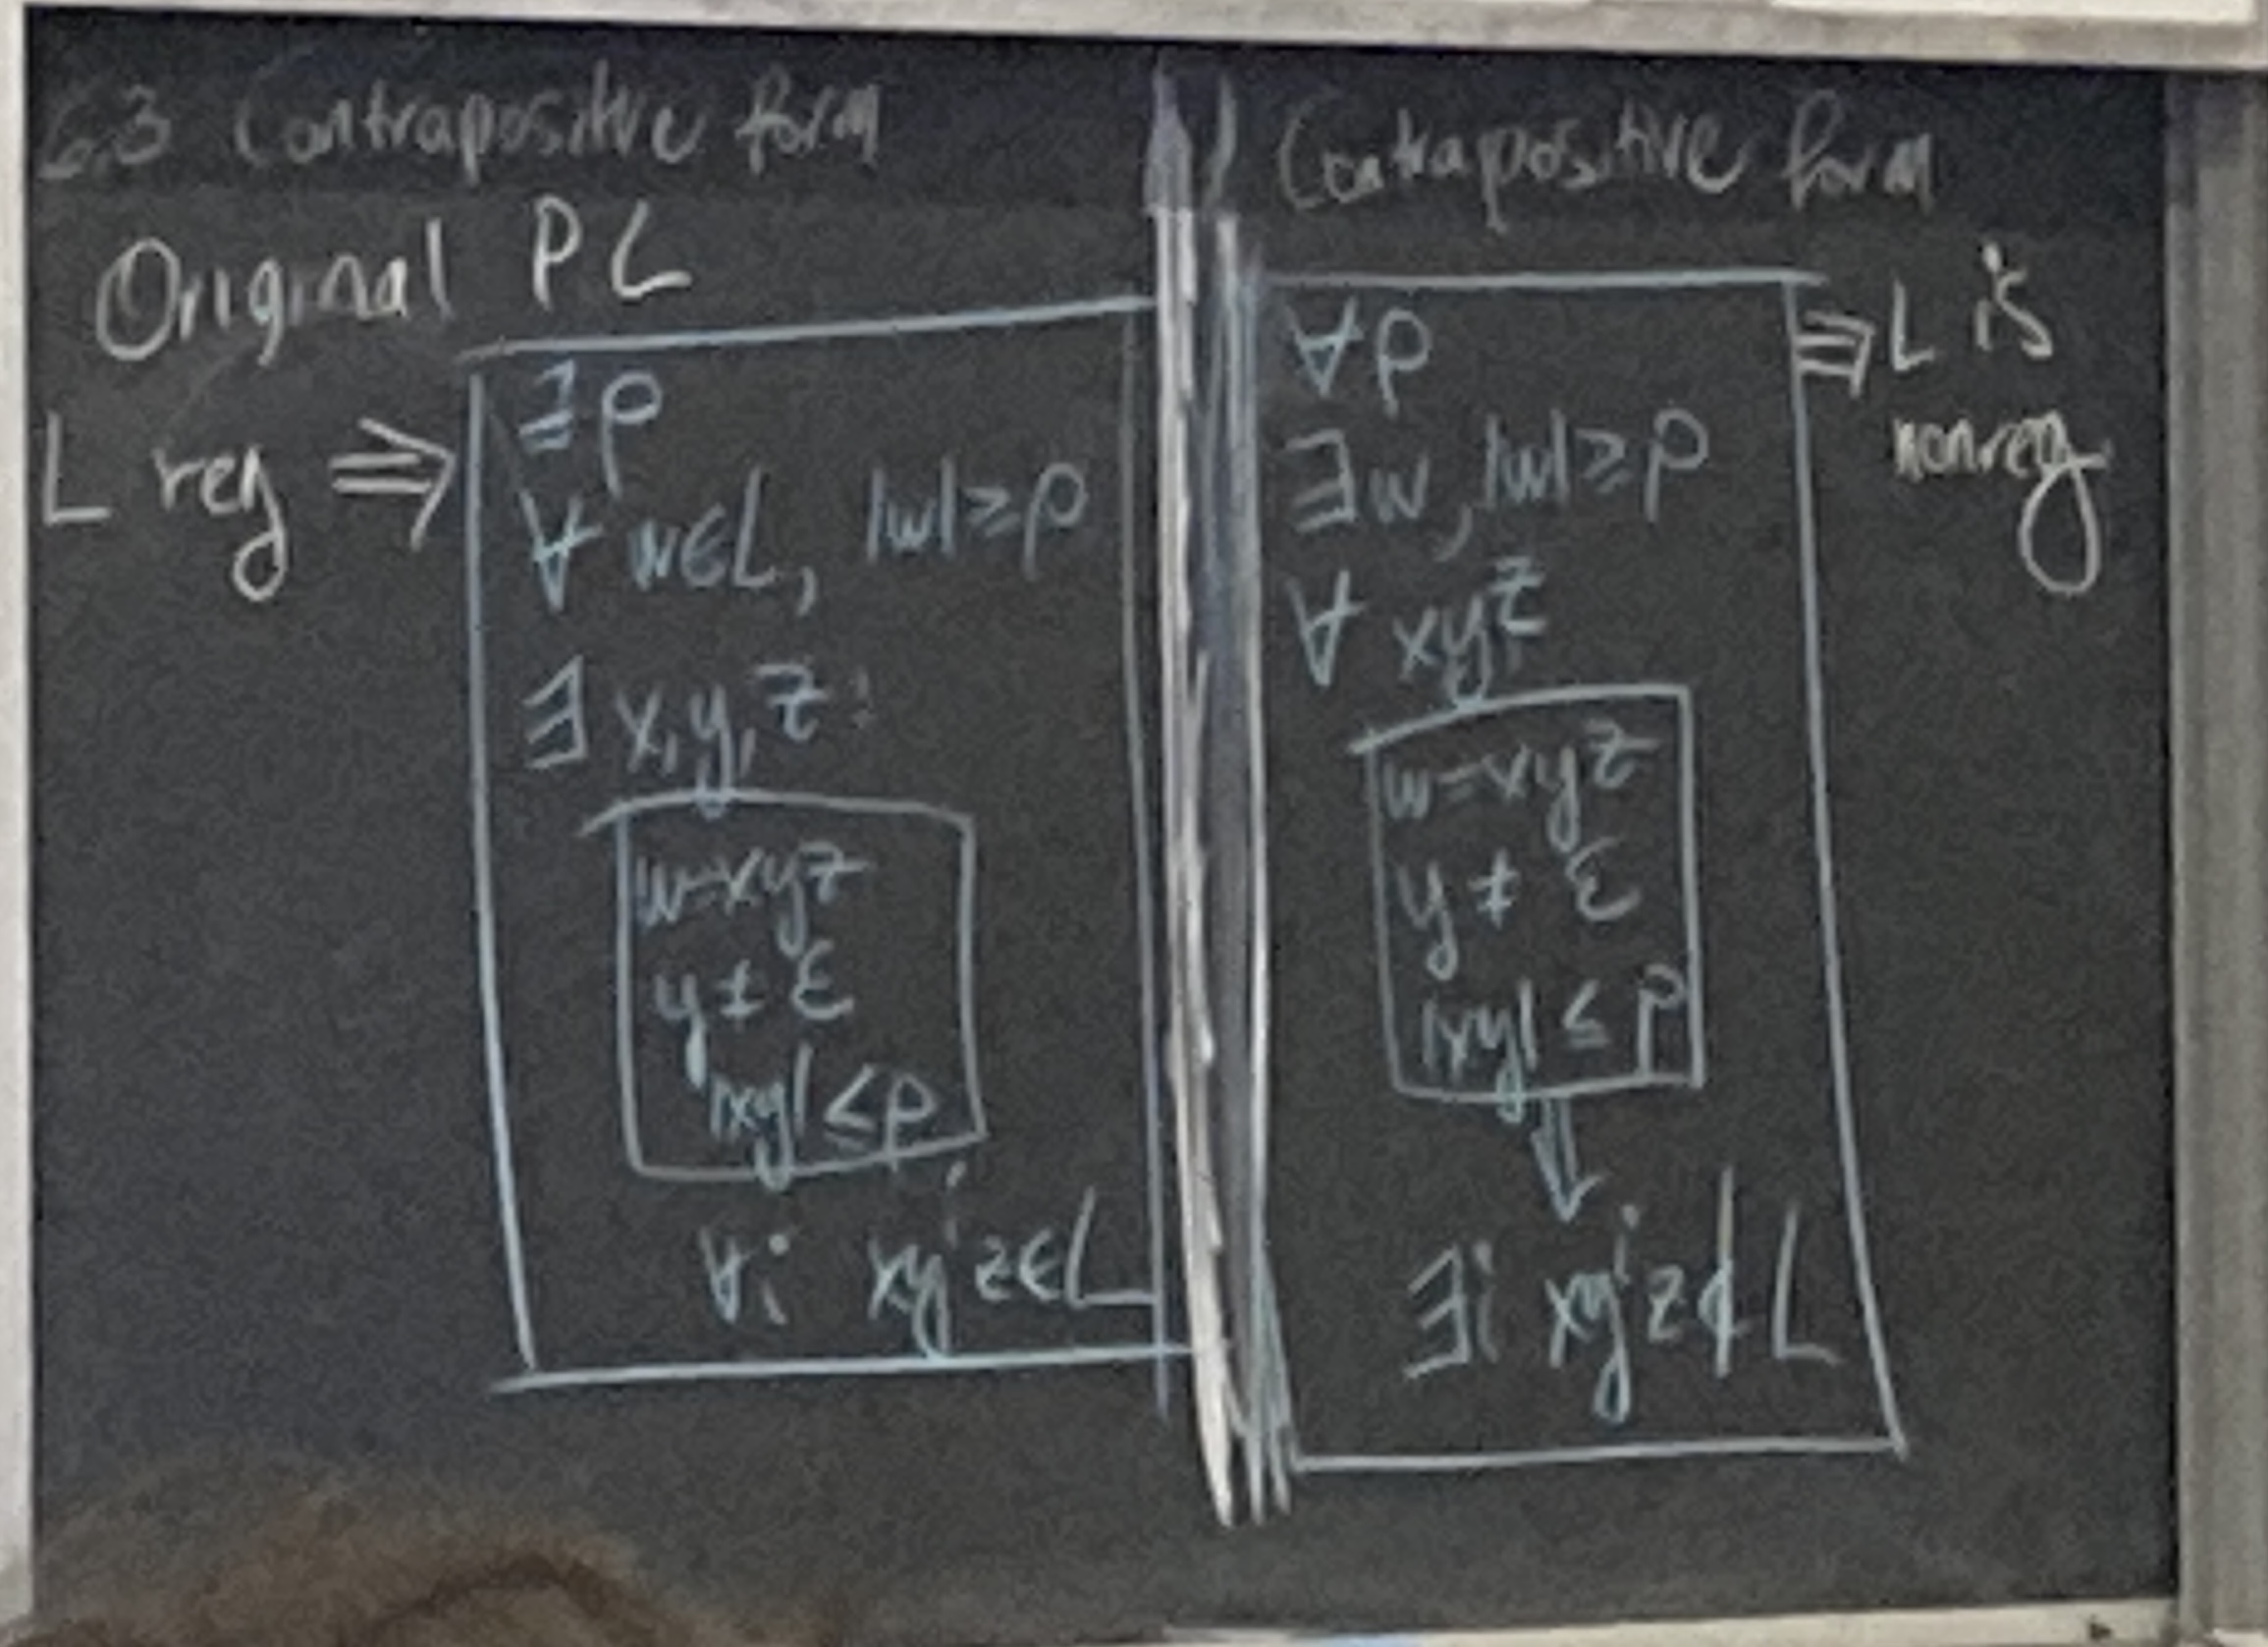 6.3 Contrapositive form
Original PL
L reg ⇒
∃p
∀ w∈L, |w|≥p
∃ x,y,z:
w=xyz
y≠ε
|xy|≤p
∀i xyⁱz∈L
Contrapositive form
∀p
∃w, |w|≥p
∀ xyz
w=xyz
y≠ε
|xy|≤p
⇓
∃i xyⁱz∉L
⇒ L is
nonreg